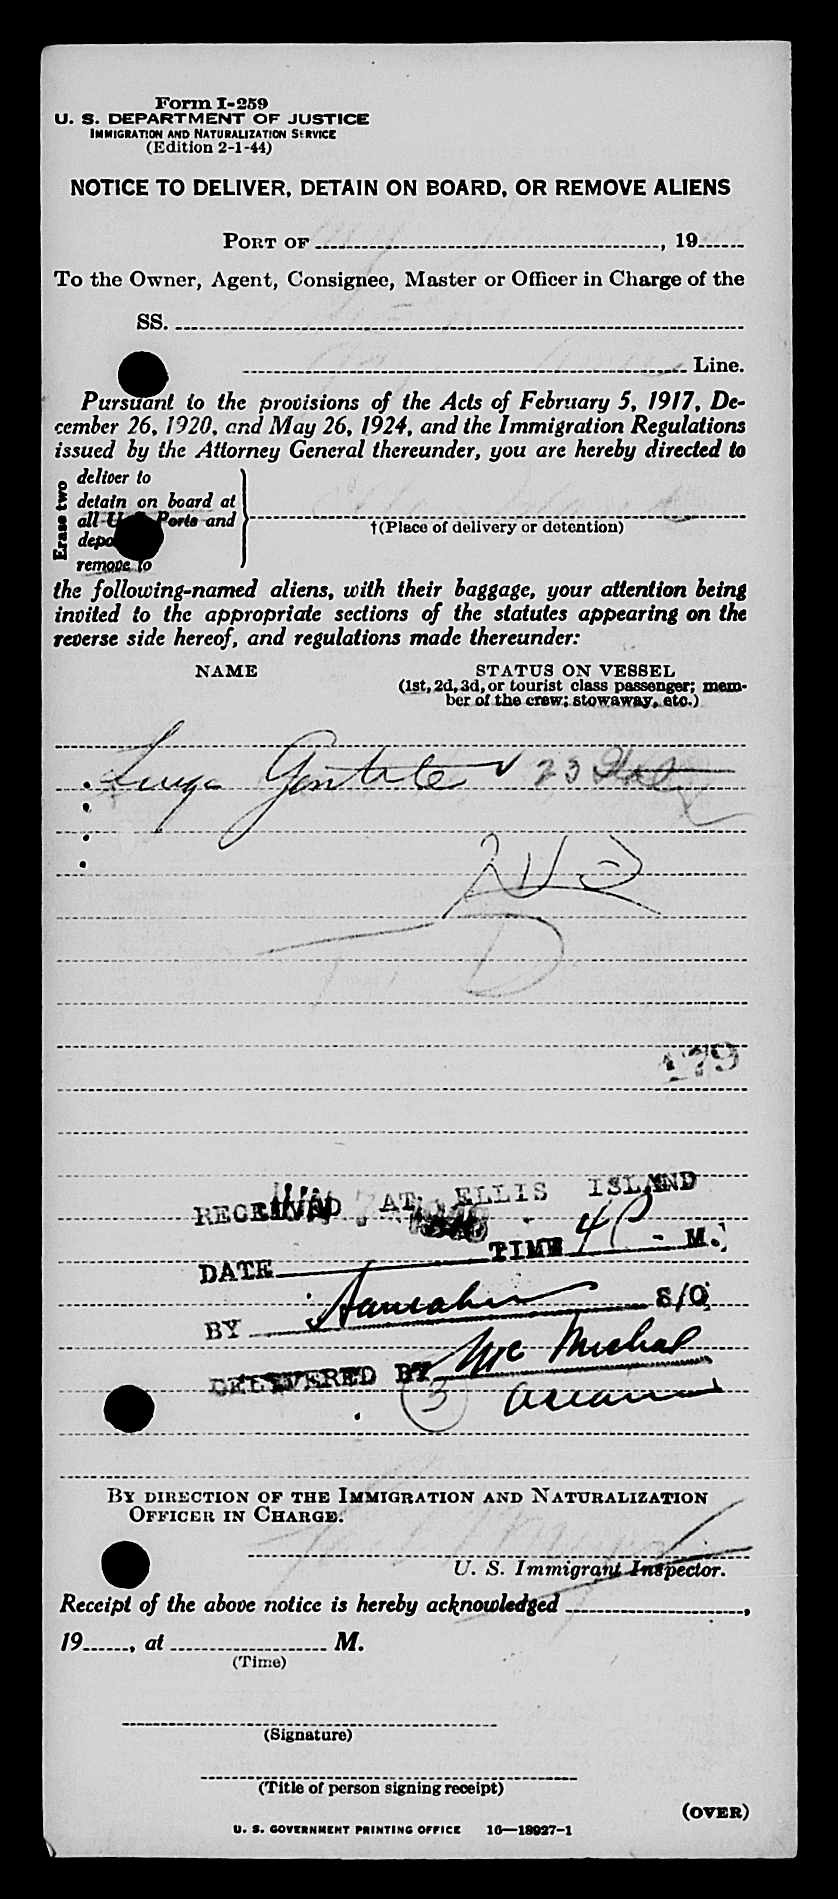 Form I-259
U. S. DEPARTMENT OF JUSTICE
IMMIGRATION AND NATURALIZATION SERVICE
(Edition 2-1-44)
NOTICE TO DELIVER, DETAIN ON BOARD, OR REMOVE ALIENS
PORT OF , 19
To the Owner, Agent, Consignee, Master or Officer in Charge of the
SS.
Line.
Pursuant to the provisions of the Acts of February 5, 1917, De-
cember 26, 1920, and May 26, 1924, and the Immigration Regulations
issued by the Attorney General thereunder, you are hereby directed to
Erase two
deliver to
detain on board at
all U. S. Ports and
remove to
†(Place of delivery or detention)
the following-named aliens, with their baggage, your attention being
invited to the appropriate sections of the statutes appearing on the
reverse side hereof, and regulations made thereunder:
NAME STATUS ON VESSEL
(1st, 2d, 3d, or tourist class passenger; mem-
ber of the crew; stowaway, etc.)
Gentile 23 Italy
179
RECEIVED AT ELLIS ISLAND
DATE TIME 4 P - M.
BY S/O
DELIVERED BY Mc Michael
3
BY DIRECTION OF THE IMMIGRATION AND NATURALIZATION
OFFICER IN CHARGE.
U. S. Immigrant Inspector.
Receipt of the above notice is hereby acknowledged ,
19 , at M.
(Time)
(Signature)
(Title of person signing receipt)
(OVER)
U. S. GOVERNMENT PRINTING OFFICE 16—18927-1